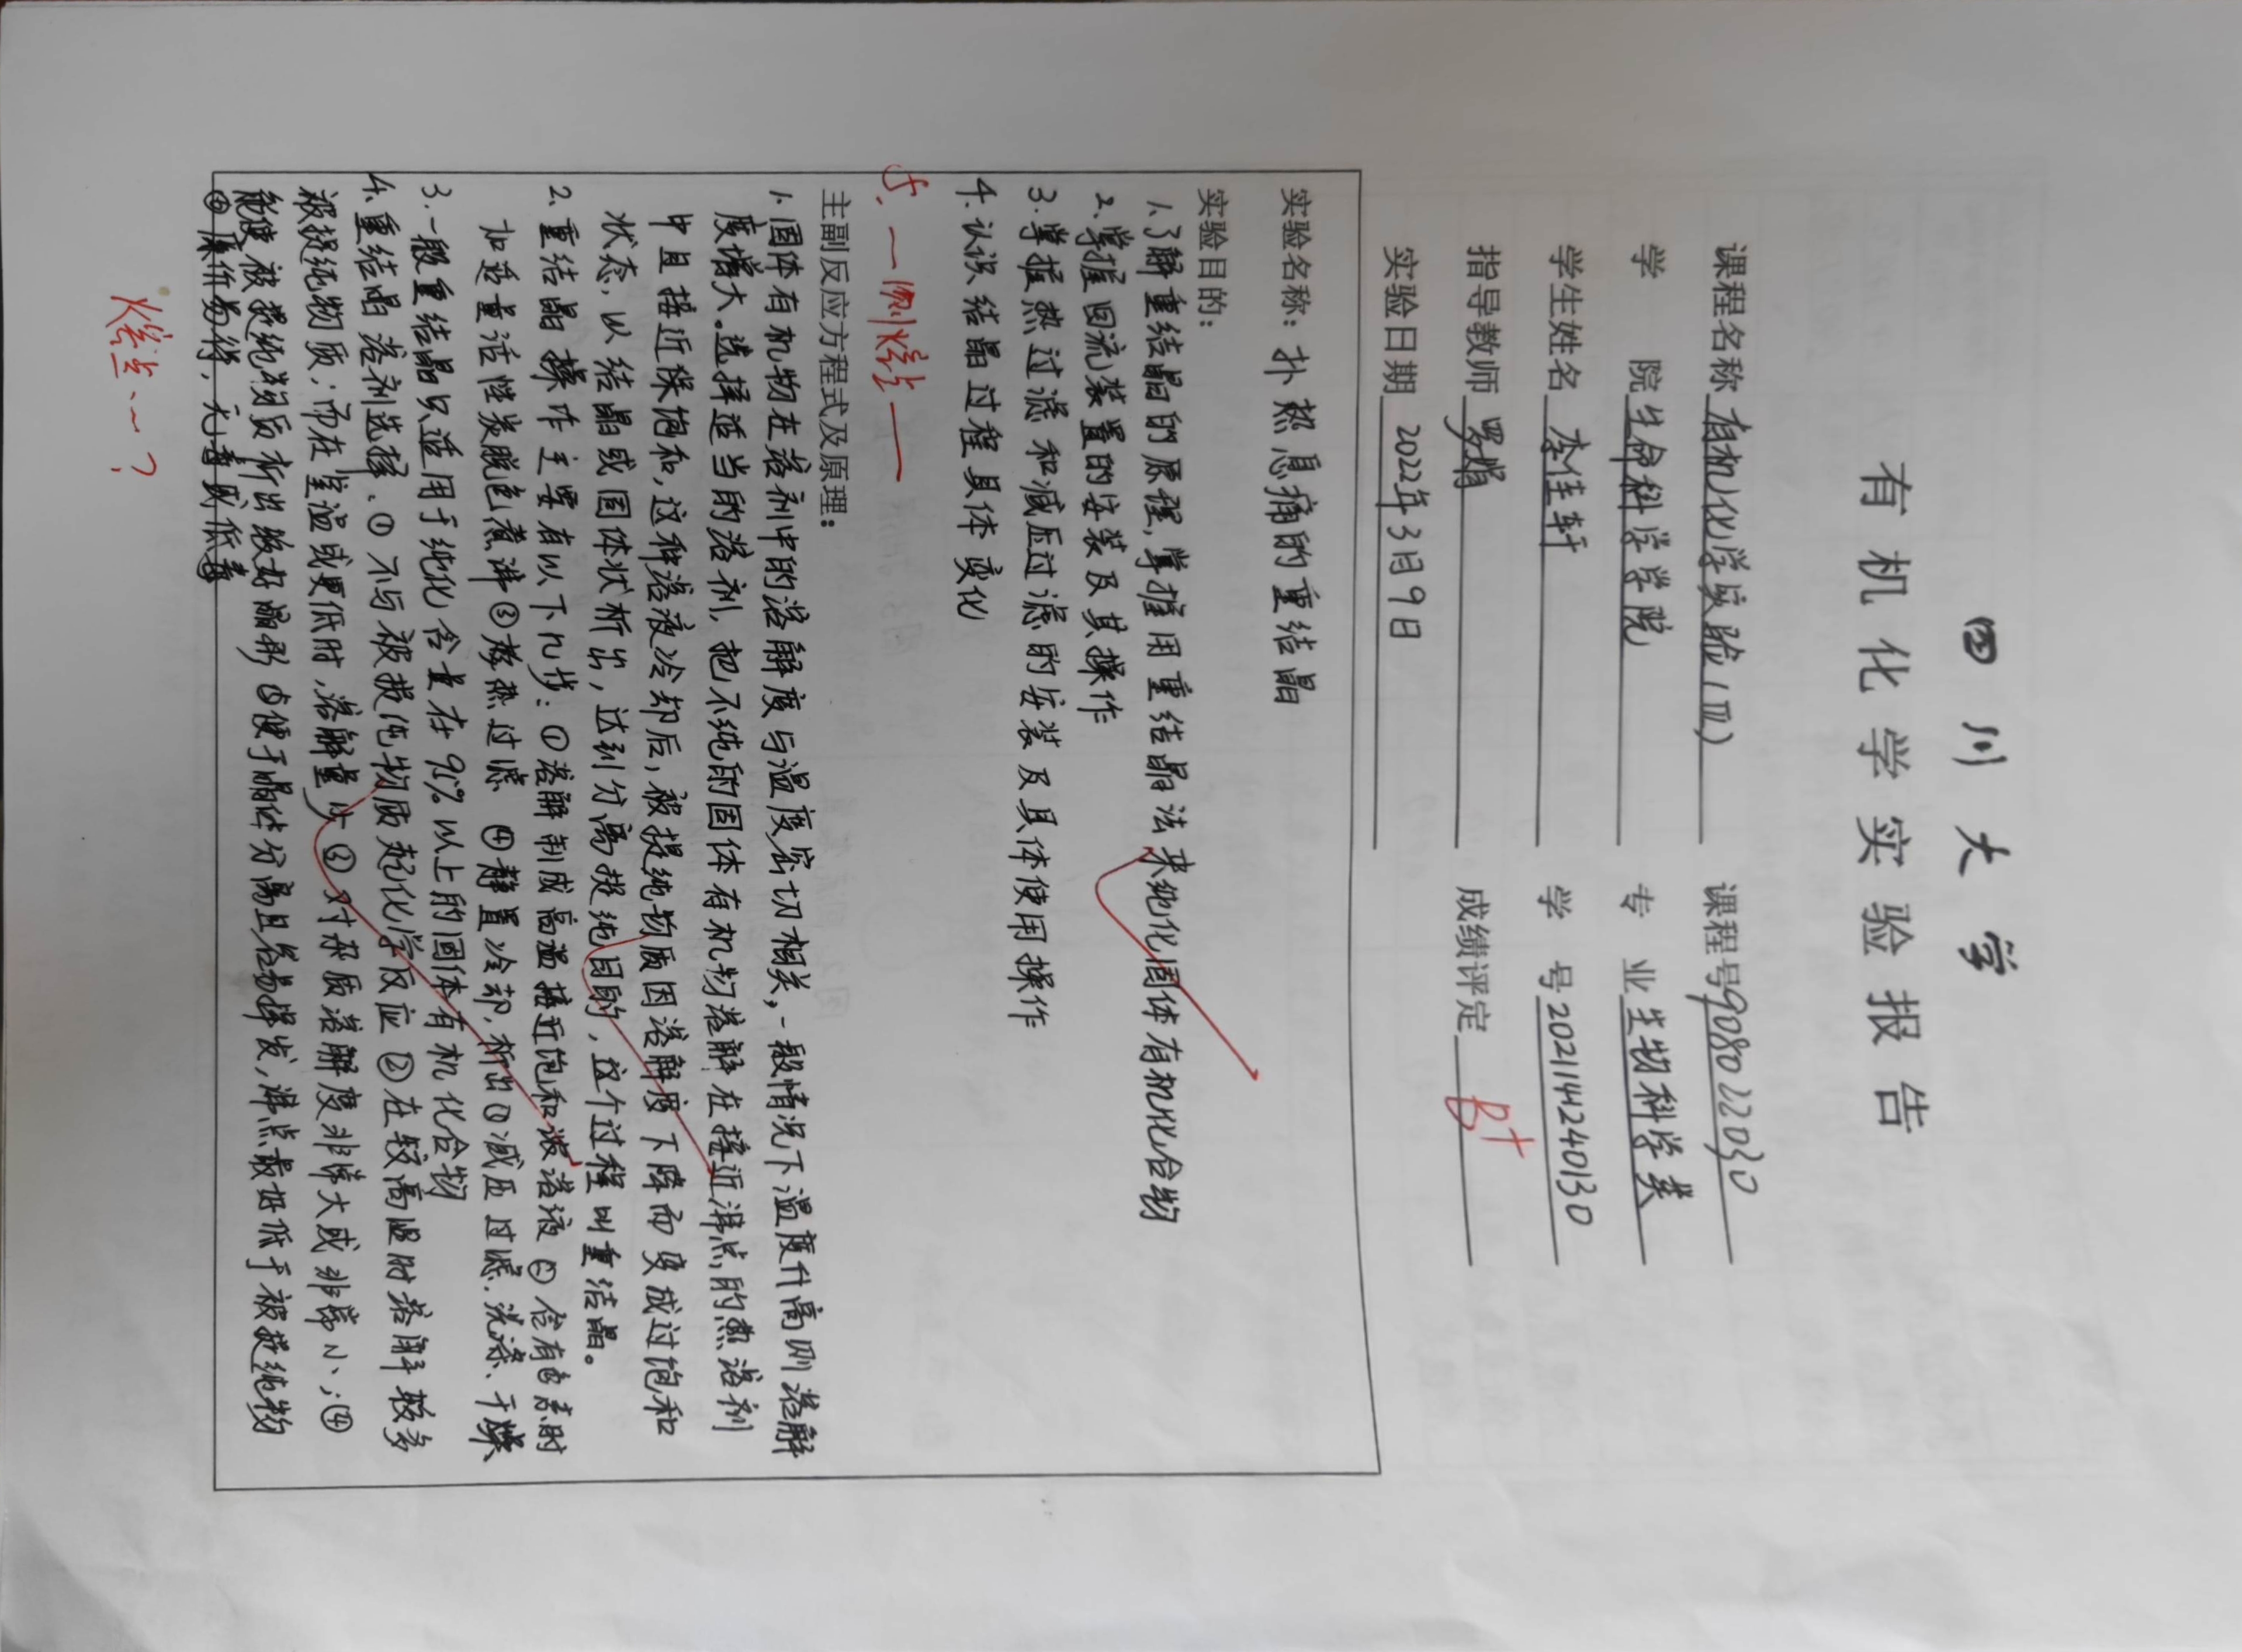 四川大学
有机化学实验报告
课程名称 有机化学实验(Ⅲ) 课程号 908022030
学 院 生命科学学院 专 业 生物科学类
学生姓名 李佳轩 学 号 2021142240130
指导教师 罗娟 成绩评定 B+
实验日期 2022年3月9日
实验名称：扑热息痛的重结晶
实验目的：
1.了解重结晶的原理，掌握用重结晶法来纯化固体有机化合物
2.掌握回流装置的安装及其操作
3.掌握热过滤和减压过滤的安装及具体使用操作
4.认识结晶过程具体变化
5.—测熔点——
主副反应方程式及原理：
1.固体有机物在溶剂中的溶解度与温度密切相关，一般情况下温度升高则溶解
度增大。选择适当的溶剂，把不纯的固体有机物溶解在接近沸点的热溶剂
中且接近保饱和，这种溶液冷却后，被提纯物质因溶解度下降而变成过饱和
状态，以结晶或固体状析出，达到分离提纯目的，这个过程叫重结晶。
2.重结晶操作主要有以下几步：①溶解制成高温接近饱和浓溶液 ②含有色素时
加适量活性炭脱色煮沸 ③趁热过滤 ④静置冷却，析出 ⑤减压过滤、洗涤、干燥
3.一般重结晶只适用于纯化含量在95%以上的固体有机化合物
4.重结晶溶剂选择、①不与被提纯物质起化学反应 ②在较高温时溶解较多
被提纯物质；而在室温或更低时，溶解量少 ③对杂质溶解度非常大或非常小；④
能使被提纯物质析出较好晶形 ⑤便于晶体分离且容易挥发，沸点最好低于被提纯物
⑥廉价易得，无毒或低毒
熔点…？